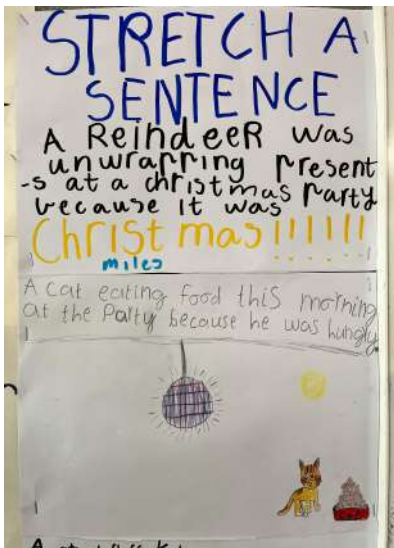 STRETCH A
SENTENCE
A ReindeeR was
unwrapping present
-s at a christmas Party
because it was
Christmas!!!!!!
miles
A cat eating food this morning
at the Party because he was hungry